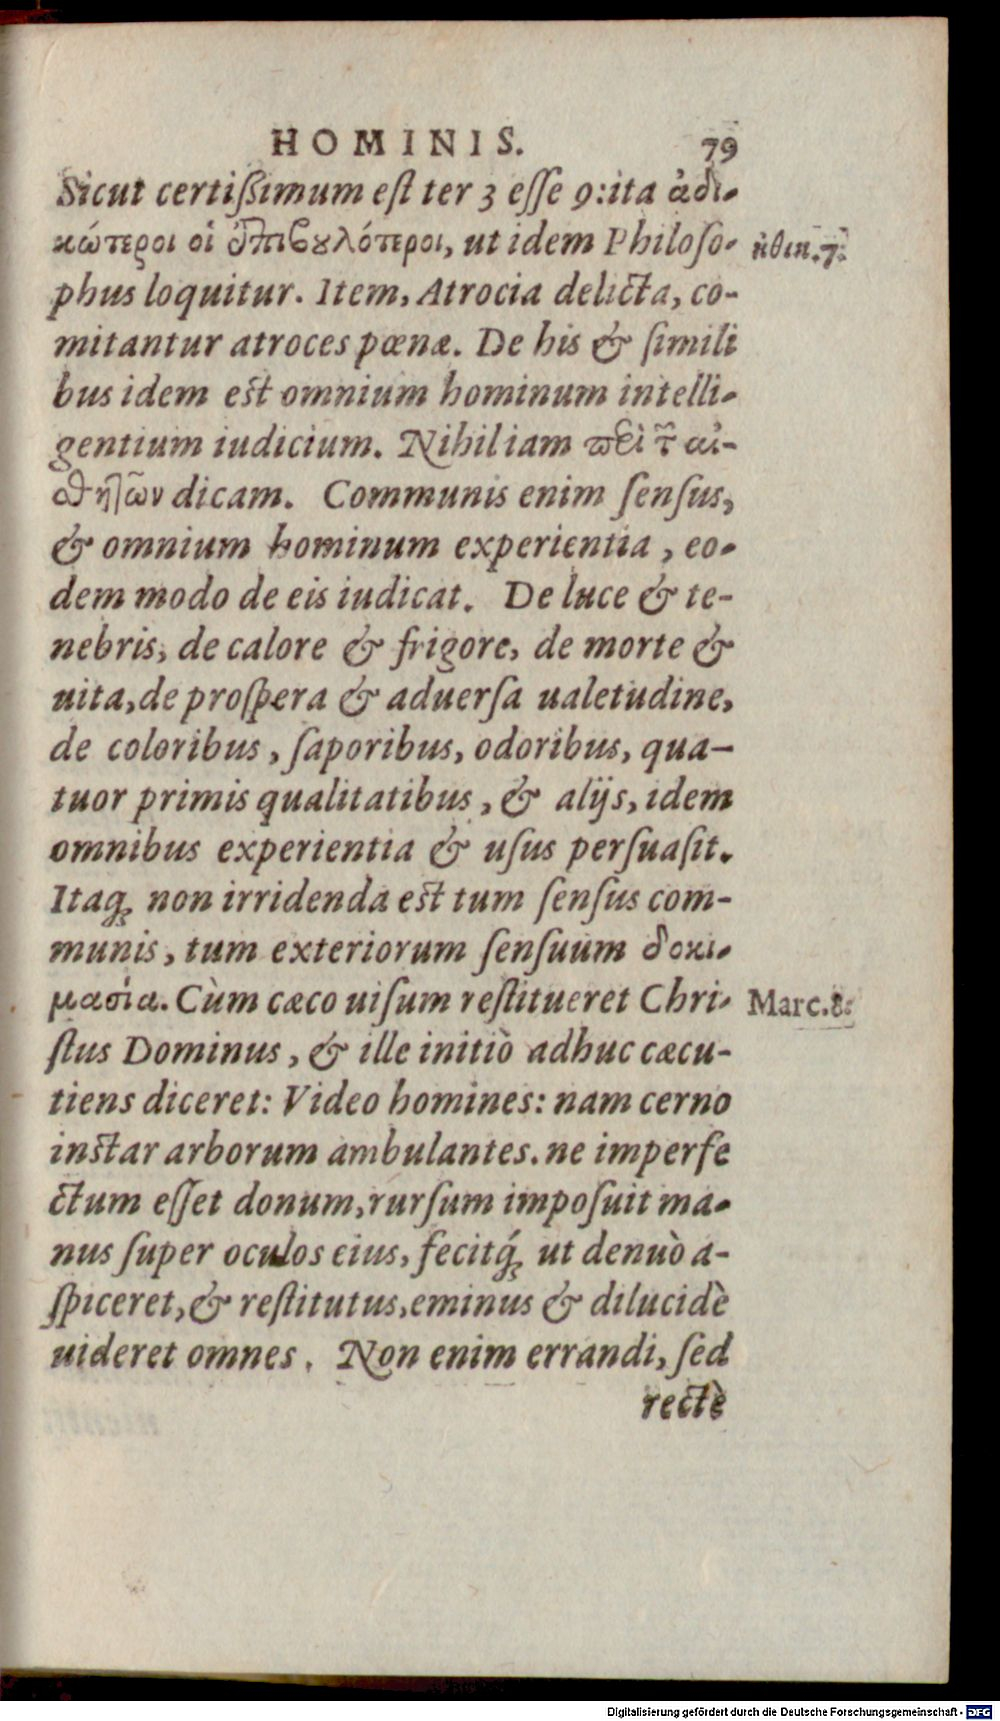 HOMINIS. 79
Sicut certißimum eſt ter 3 eſſe 9:ita ἀδι-
κώτεροι οἱ ἐπιβουλότεροι, ut idem Philoſo- ἠθικ.7.
phus loquitur. Item, Atrocia delicta, co-
mitantur atroces pœnæ. De his & ſimili
bus idem eſt omnium hominum intelli-
gentium iudicium. Nihil iam περὶ τῶν αἰ-
σθητῶν dicam. Communis enim ſenſus,
& omnium hominum experientia, eo-
dem modo de eis iudicat. De luce & te-
nebris, de calore & frigore, de morte &
uita, de proſpera & aduerſa ualetudine,
de coloribus, ſaporibus, odoribus, qua-
tuor primis qualitatibus, & alijs, idem
omnibus experientia & uſus perſuaſit.
Itaq; non irridenda eſt tum ſenſus com-
munis, tum exteriorum ſenſuum δοκι-
μασία. Cùm cæco uiſum reſtitueret Chri- Marc.8.
ſtus Dominus, & ille initiò adhuc cæcu-
tiens diceret: Video homines: nam cerno
inſtar arborum ambulantes. ne imperfe
ctum eſſet donum, rurſum impoſuit ma-
nus ſuper oculos eius, fecitq́; ut denuò a-
ſpiceret, & reſtitutus, eminus & dilucidè
uideret omnes. Non enim errandi, ſed
rectè
Digitalisierung gefördert durch die Deutsche Forschungsgemeinschaft - DFG